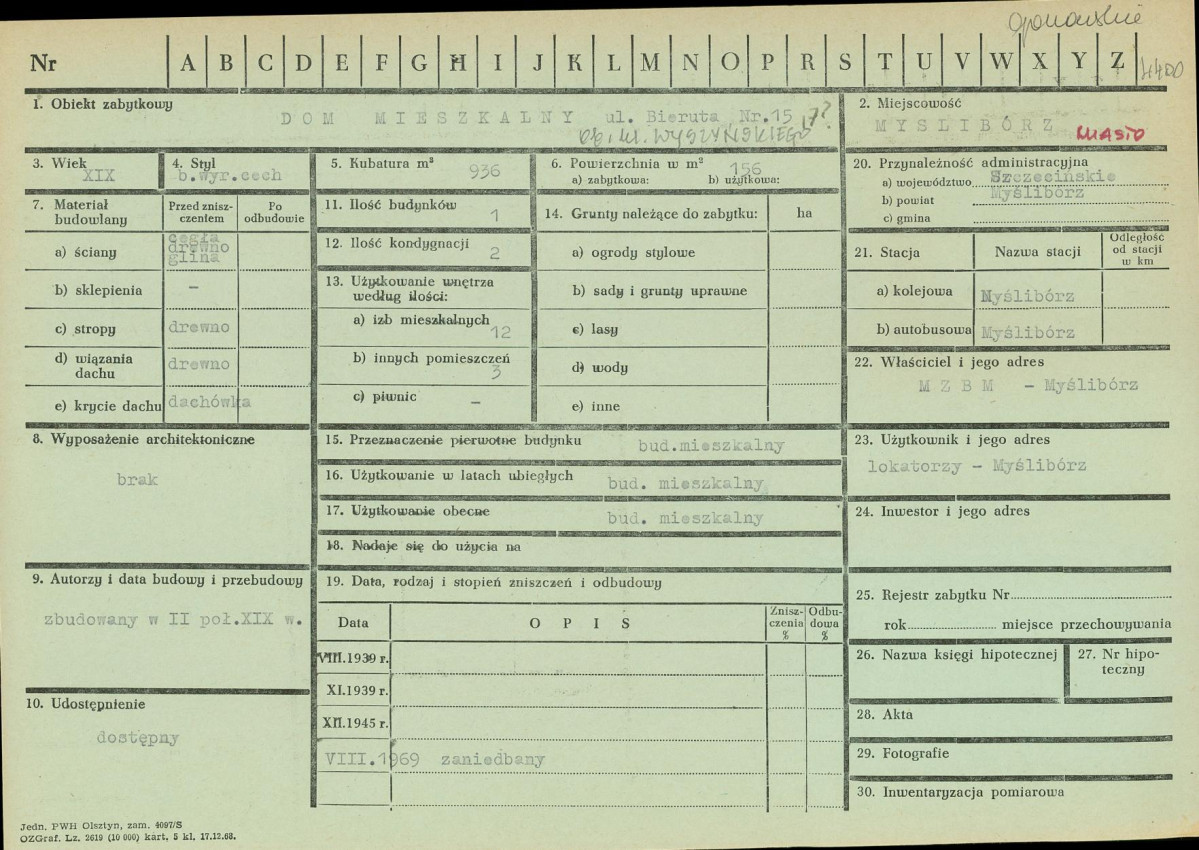 opracowanie
Nr A B C D E F G H I J K L M N O P R S T U V W X Y Z 4400
1. Obiekt zabytkowy
DOM MIESZKALNY ul. Bieruta Nr.15 17?
ob. ul. WYSZYŃSKIEGO
2. Miejscowość
MYSLIBÓRZ MIASTO
3. Wiek
XIX
4. Styl
b.wyr.cech
5. Kubatura m³
936
6. Powierzchnia w m²
156
a) zabytkowa: b) użytkowa:
20. Przynależność administracyjna
a) województwo Szczecińskie
b) powiat Myślibórz
c) gmina
7. Materiał budowlany
Przed znisz-
czeniem
Po
odbudowie
a) ściany
cegła
drewno
glina
b) sklepienia -
c) stropy drewno
d) wiązania
dachu drewno
e) krycie dachu dachówka
11. Ilość budynków
1
12. Ilość kondygnacji
2
13. Użytkowanie wnętrza
według ilości:
a) izb mieszkalnych
12
b) innych pomieszczeń
3
c) piwnic -
14. Grunty należące do zabytku: ha
a) ogrody stylowe
b) sady i grunty uprawne
c) lasy
d) wody
e) inne
21. Stacja Nazwa stacji
Odległość
od stacji
w km
a) kolejowa Myślibórz
b) autobusowa Myślibórz
22. Właściciel i jego adres
MZBM - Myślibórz
8. Wyposażenie architektoniczne
brak
15. Przeznaczenie pierwotne budynku bud.mieszkalny
16. Użytkowanie w latach ubiegłych bud. mieszkalny
17. Użytkowanie obecne bud. mieszkalny
18. Nadaje się do użycia na
23. Użytkownik i jego adres
lokatorzy - Myślibórz
24. Inwestor i jego adres
9. Autorzy i data budowy i przebudowy
zbudowany w II poł.XIX w.
19. Data, rodzaj i stopień zniszczeń i odbudowy
Data OPIS
Znisz-
czenia
%
Odbu-
dowa
%
VIII.1939 r.
XI.1939 r.
XII.1945 r.
VIII.1969 zaniedbany
25. Rejestr zabytku Nr
rok miejsce przechowywania
26. Nazwa księgi hipotecznej
27. Nr hipo-
teczny
28. Akta
29. Fotografie
30. Inwentaryzacja pomiarowa
10. Udostępnienie
dostępny
Jedn. PWH Olsztyn, zam. 4097/S
OZGraf. Lz. 2619 (10 000) kart. 5 kl. 17.12.68.